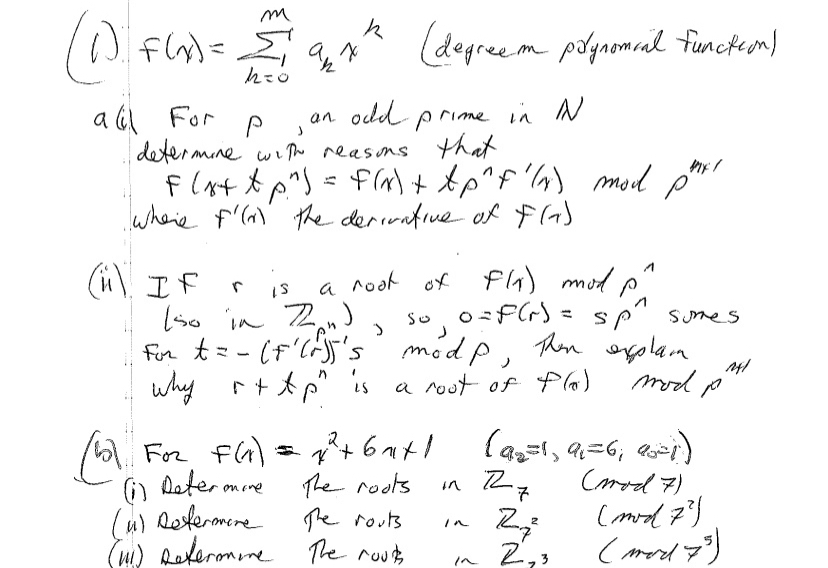 (1) f(x) = m∑k=0 a_k x^k (degree m polynomial function)
a(i) For p, an odd prime in ℕ
determine with reasons that
f(x + tp^n) = f(x) + tp^n f'(x) mod p^{n+1}
where f'(x) the derivative of f(x)
(ii) If r is a root of f(x) mod p^n
(so in ℤ_{p^n}), so, 0 = f(r) = sp^n some s
For t = -(f'(r))^{-1} s mod p, then explain
why r + tp^n is a root of f(x) mod p^{n+1}
(b) For f(x) = x^2 + 6x + 1 (a_2=1, a_1=6, a_0=1)
(i) Determine the roots in ℤ_7 (mod 7)
(ii) Determine the roots in ℤ_{7^2} (mod 7^2)
(iii) Determine the roots in ℤ_{7^3} (mod 7^3)